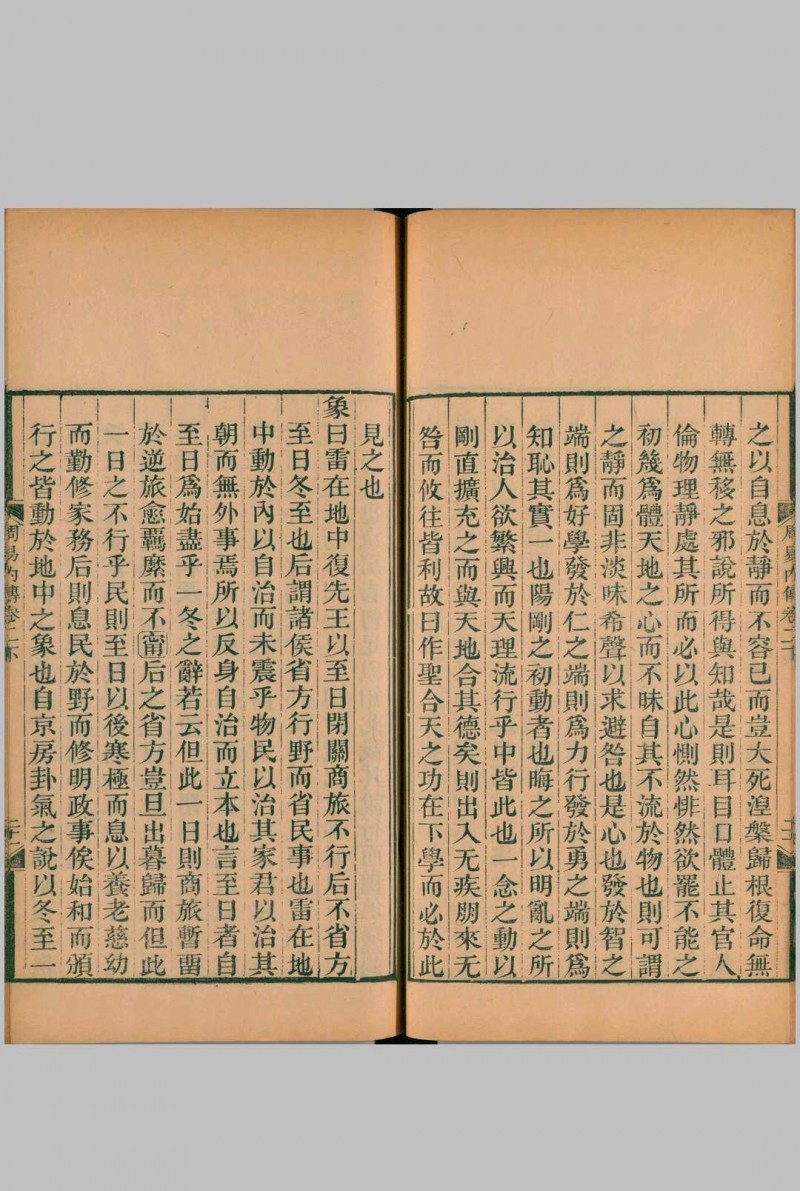 之以自息於靜而不容已而豈大死湼槃歸根復命無
轉無移之邪說所得與知哉是則耳目口體止其官人
倫物理靜處其所而必以此心惻然悱然欲罷不能之
初幾爲體天地之心而不昧自其不流於物也則可謂
之靜而固非淡味希聲以求避咎也是心也發於智之
端則爲好學發於仁之端則爲力行發於勇之端則爲
知恥其實一也陽剛之初動者也晦之所以明亂之所
以治人欲繁興而天理流行乎中皆此也一念之動以
剛直擴充之而與天地合其德矣則出入无疾朋來无
咎而攸往皆利故曰作聖合天之功在下學而必於此
周易內傳卷二下
見之也
象曰雷在地中復先王以至日閉關商旅不行后不省方
至日冬至也后謂諸侯省方行野而省民事也雷在地
中動於內以自治而未震乎物民以治其家君以治其
朝而無外事焉所以反身自治而立本也言至日者自
至日爲始盡乎一冬之辭若云但此一日則商旅暫畱
於逆旅愈羈縻而不甯后之省方豈旦出暮歸而但此
一日之不行乎民則至日以後寒極而息以養老慈幼
而勤修家務后則息民於野而修明政事俟始和而頒
行之皆動於地中之象也自京房卦氣之說以冬至一
周易內傳卷二下